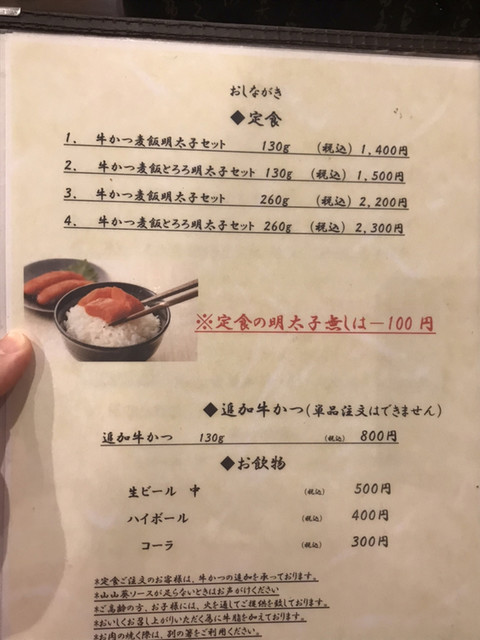 おしながき
◆定食
1. 牛かつ麦飯明太子セット 130g (税込) 1,400円
2. 牛かつ麦飯とろろ明太子セット 130g (税込) 1,500円
3. 牛かつ麦飯明太子セット 260g (税込) 2,200円
4. 牛かつ麦飯とろろ明太子セット 260g (税込) 2,300円
※定食の明太子無しは－100円
◆追加牛かつ(単品注文はできません)
追加牛かつ 130g (税込) 800円
◆お飲物
生ビール 中 (税込) 500円
ハイボール (税込) 400円
コーラ (税込) 300円
※定食ご注文のお客様は、牛かつの追加を承っております。
※山山葵ソースが足らないときはお声がけください
※ご高齢の方、お子様には、火を通してご提供を致しております。
※おいしくお召し上がりいただく為に牛脂を加えております。
※お肉の焼く際は、別の箸をご利用ください。